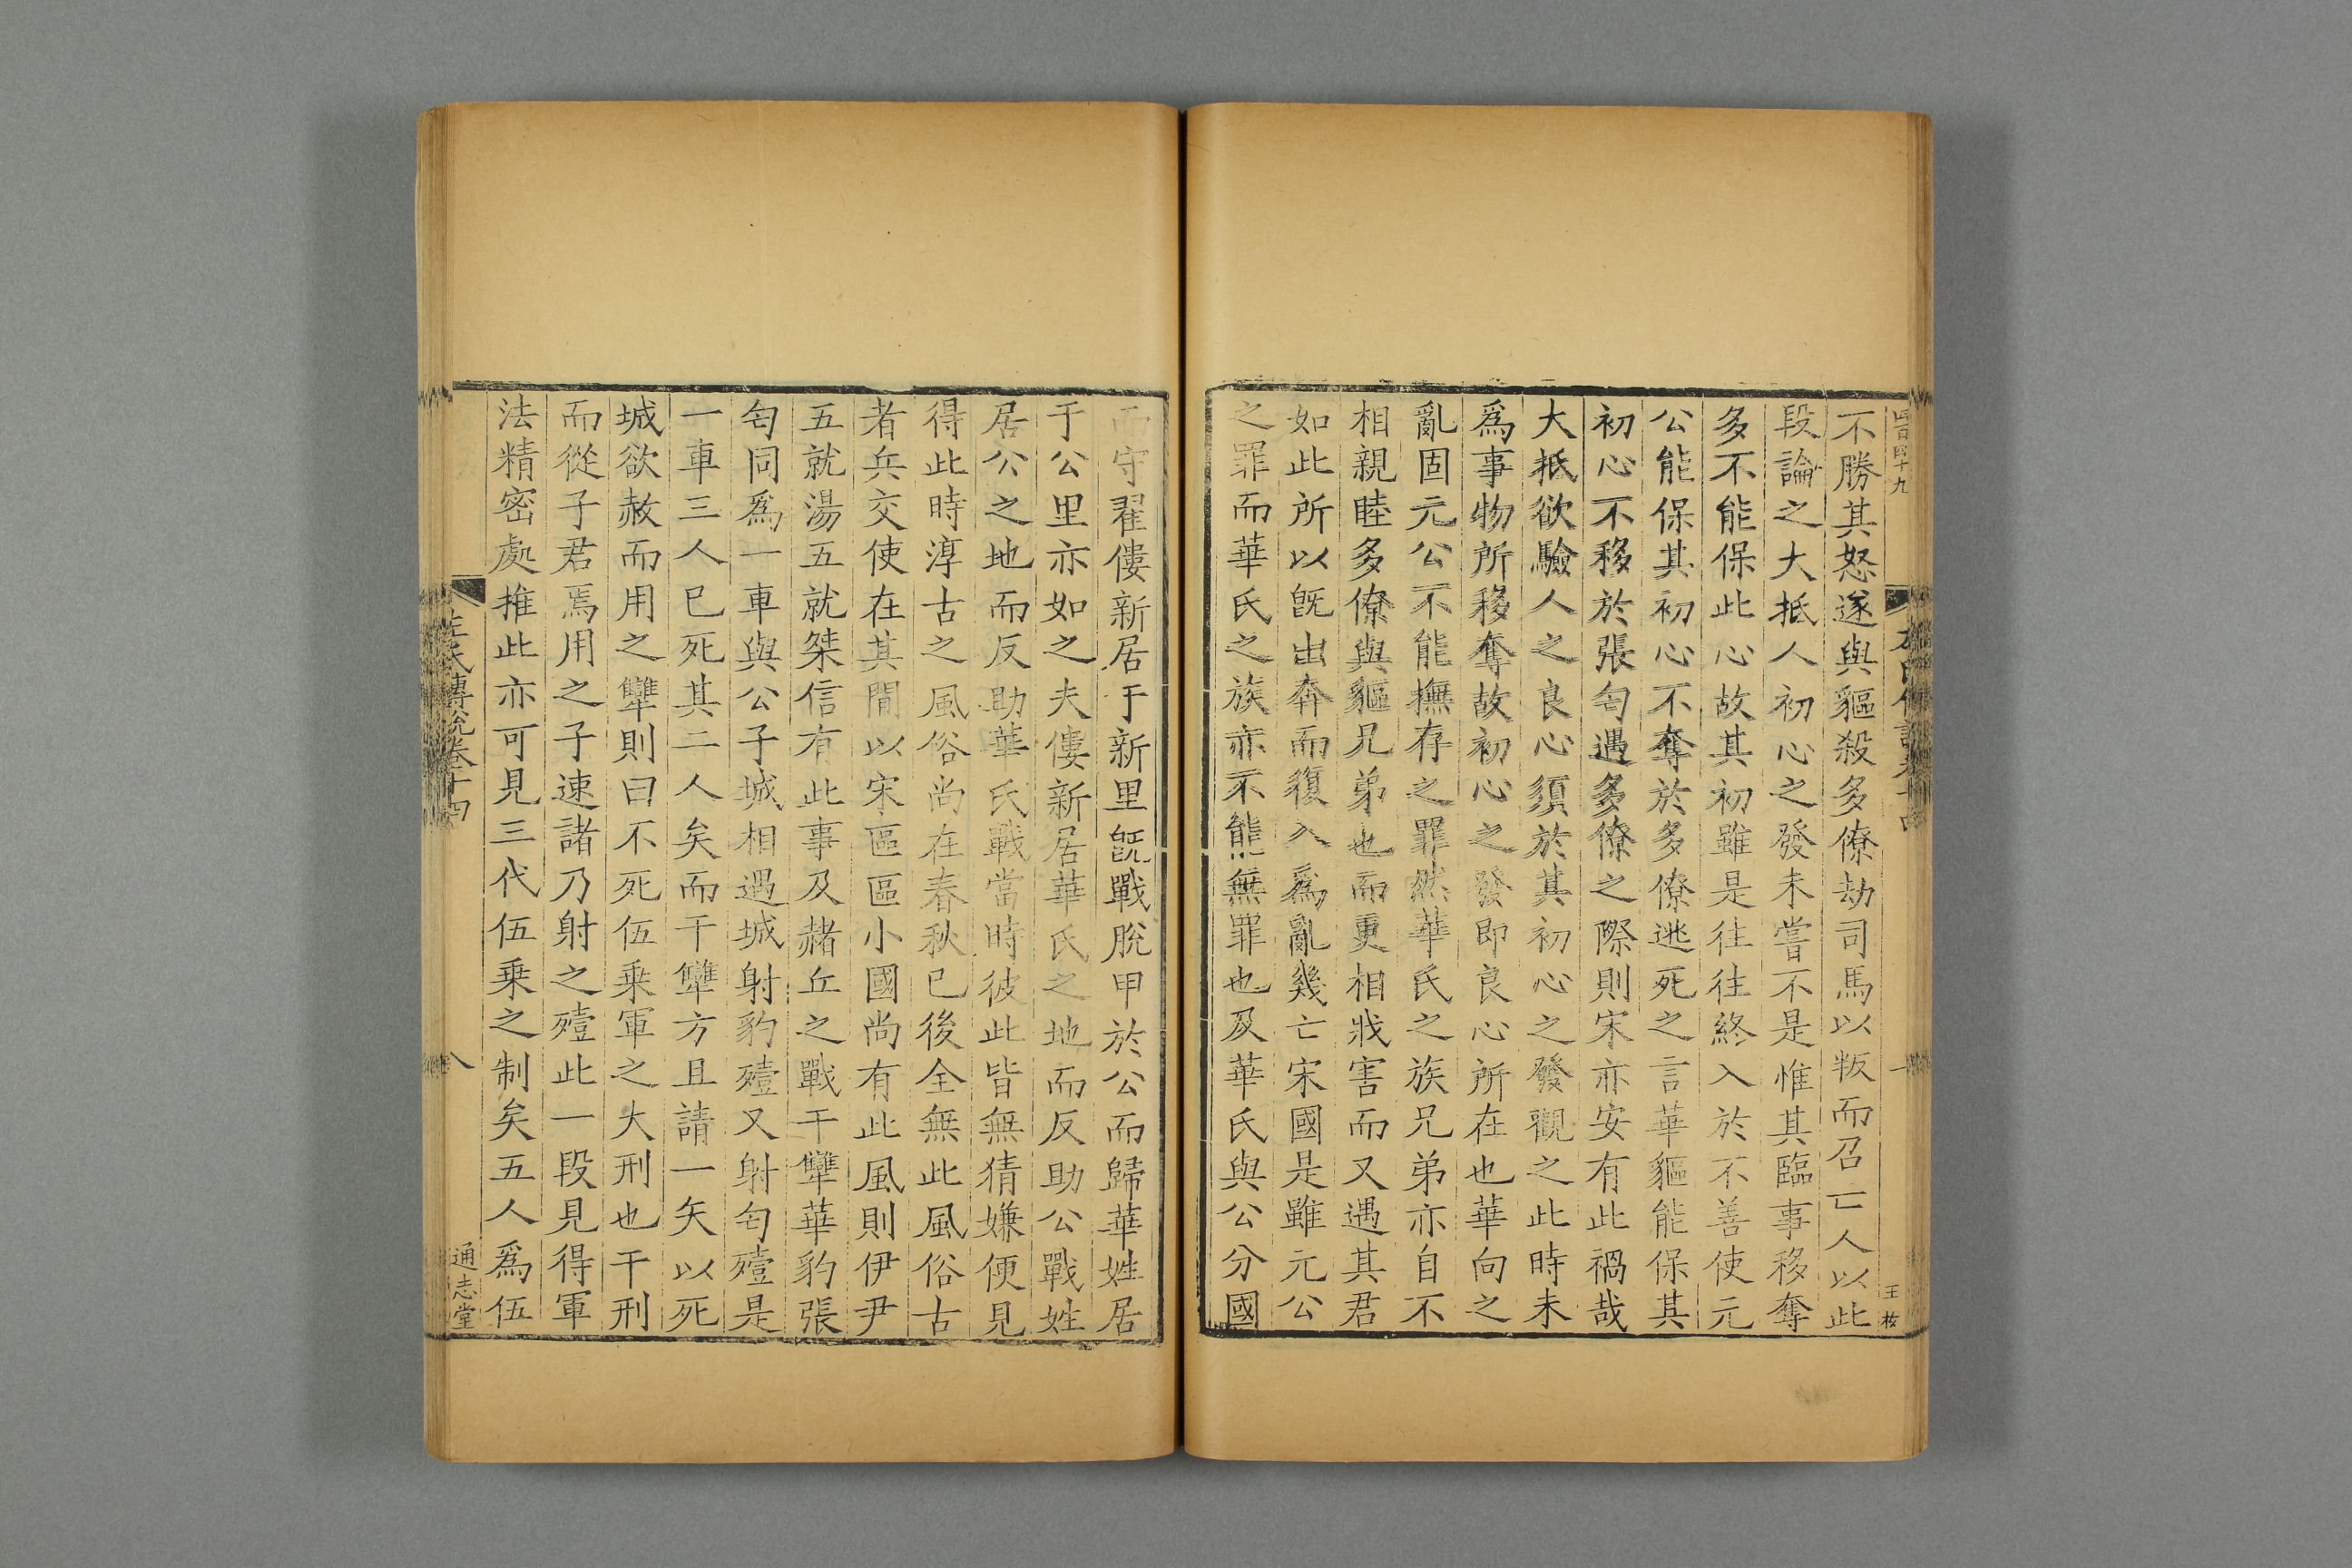 四百四十九
王枚
不勝其怒遂與貙殺多僚劫司馬以叛而召亡人以此
段論之大抵人初心之發未嘗不是惟其臨事移奪
多不能保此心故其初雖是往往終入於不善使元
公能保其初心不奪於多僚逃死之言華貙能保其
初心不移於張匄遇多僚之際則宋亦安有此禍哉
大抵欲驗人之良心須於其初心之發觀之此時未
爲事物所移奪故初心之發即良心所在也華向之
亂固元公不能撫存之罪然華氏之族兄弟亦自不
相親睦多僚與貙兄弟也而更相戕害而又遇其君
如此所以旣出奔而復入爲亂幾亡宋國是雖元公
之罪而華氏之族亦不能無罪也及華氏與公分國
而守翟僂新居于新里旣戰脫甲於公而歸華姓居
于公里亦如之夫僂新居華氏之地而反助公戰姓
居公之地而反助華氏戰當時彼此皆無猜嫌便見
得此時淳古之風俗尚在春秋已後全無此風俗古
者兵交使在其間以宋區區小國尚有此風則伊尹
五就湯五就桀信有此事及赭丘之戰干犨華豹張
匄同爲一車與公子城相遇城射豹殪又射匄殪是
一車三人已死其二人矣而干犨方且請一矢以死
城欲赦而用之犨則曰不死伍乗軍之大刑也干刑
而從子君焉用之子速諸乃射之殪此一段見得軍
法精密處推此亦可見三代伍乗之制矣五人爲伍
左氏傳說卷十四
八
通志堂